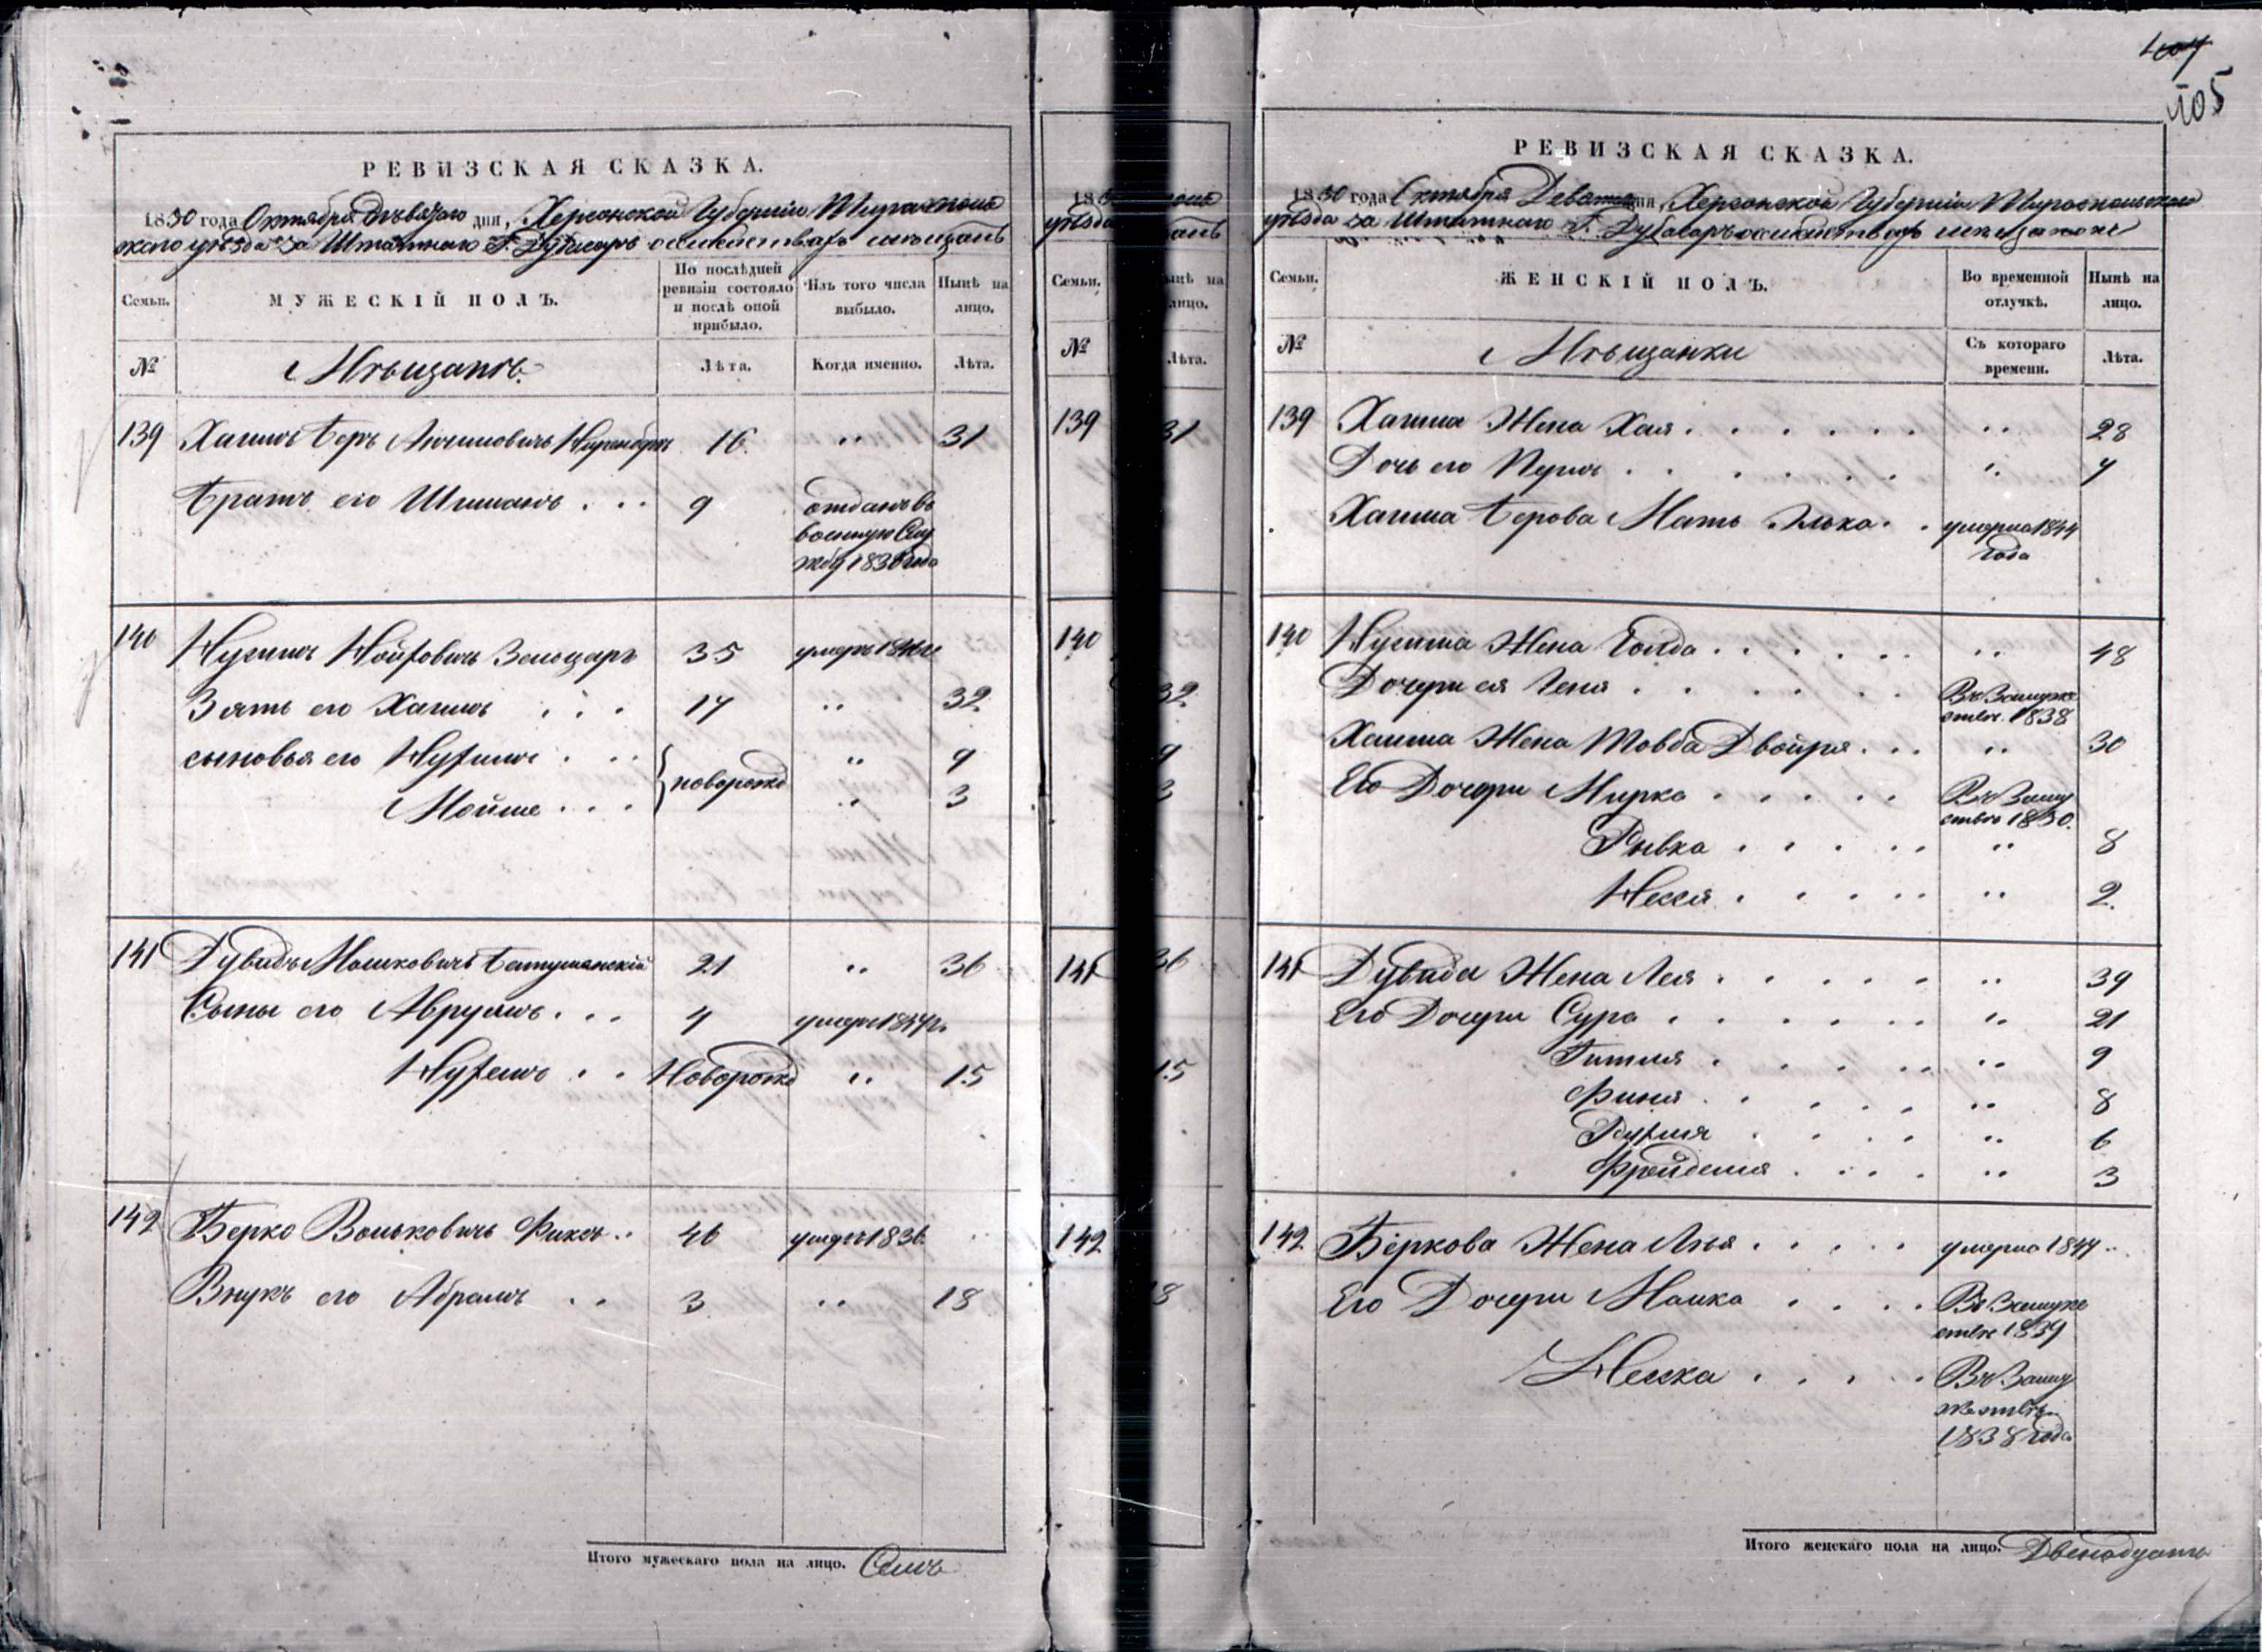 407
405
РЕВИЗСКАЯ СКАЗКА.
1850 года Октября девятаго дня, Херсонской Губерніи Тираспол
скаго уѣзда за Штатнаго Г. Дубосаръ о мѣщанъ
Семьи.
МУЖЕСКІЙ ПОЛЪ.
По послѣдней ревизіи состояло и послѣ оной прибыло.
Изъ того числа выбыло.
Нынѣ на лицо.
№
Мѣщанъ
Лѣта.
Когда именно.
Лѣта.
139 Хаимъ Беръ 16 " 31
братъ его Шиманъ . . . 9 отданъ въ
военную Слу
жбу 183 года
140 Нухимъ 35 умеръ
Зять его Хаимъ . . . 17 " 32
сыновья его Нухимъ . . . новорожд " 9
Мойше . . . " 3
141 Дувидъ Мошковичъ 21 " 36
Сыны его Аврумъ . . . 4 умеръ
Нухимъ . . Новорожд " 15
142 Берко Вольковичъ Фиксъ . . 46 умеръ 1836
Внукъ его Абрамъ . . 3 " 18
Итого мужескаго пола на лицо. Семь
Семьи.
№
ынѣ на
лицо.
Лѣта.
139 31
140
32
9
3
141 36
15
142
18
РЕВИЗСКАЯ СКАЗКА.
1850 года Октября Девятаго дня, Херсонской Губерніи Тираспольскаго
уѣзда за Штатнаго Г. Дубосаръ о мѣщанокъ
Семьи.
ЖЕНСКІЙ ПОЛЪ.
Во временной отлучкѣ.
Нынѣ на лицо.
№
Мѣщанки
Съ котораго времени.
Лѣта.
139 Хаима Жена Хая . . . . . . " 28
Дочь его . . . . . . " 7
Хаима Берова Мать Элька . . умерла 1844
года
140 Нухима Жена Голда . . . . . . " 48
Дочери ея Геня . . . . . . Въ Замуже
ствѣ. 1838
Хаима Жена Товба Двойра . . . " 30
Его Дочери Мирка . . . . . Въ Заму
ствѣ 1850.
Рывка . . . . . " 8
Несея . . . . . " 2.
141 Дувида Жена Лея . . . . . . " 39
Его Дочери Сура . . . . . . " 21
Гитля . . . . . " 9
Финя . . . . . " 8
Рухля . . . . " 6
Фрейделя . . . . " 3
142 Беркова Жена . . . . . умерла 1844
Его Дочери Малка . . . . Въ Замуже
ствѣ 1839
Неска . . . . . Въ Заму
жествѣ
1838 года
Итого женскаго пола на лицо. Двенадцать